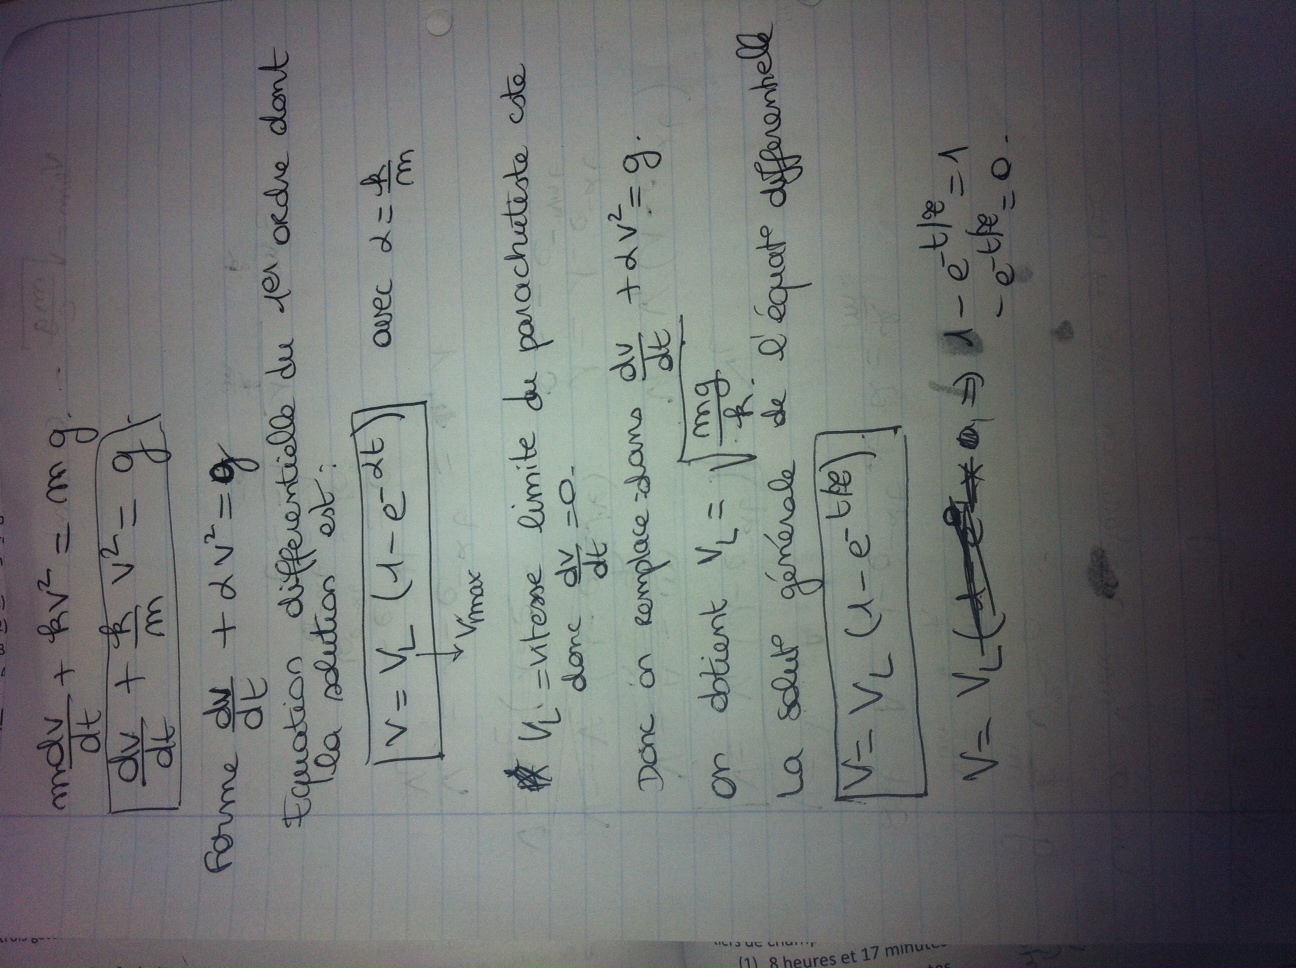 m dv/dt + kv² = mg.
dv/dt + k/m v² = g.
Forme dv/dt + αv² = g
Equation différentielle du 1er ordre dont
la solution est :
V = V_L (1 - e^-αt) avec α = k/m
→ Vmax
V_L = vitesse limite du parachutiste cste
donc dv/dt = 0.
Donc on remplace dans dv/dt + αv² = g.
on obtient V_L = √(mg/k).
La solut° générale de l'équat° différentielle
V = V_L (1 - e^-t/τ)
V = V_L ⇒ 1 - e^-t/τ = 1
- e^-t/τ = 0.
(1) 8 heures et 17 minutes